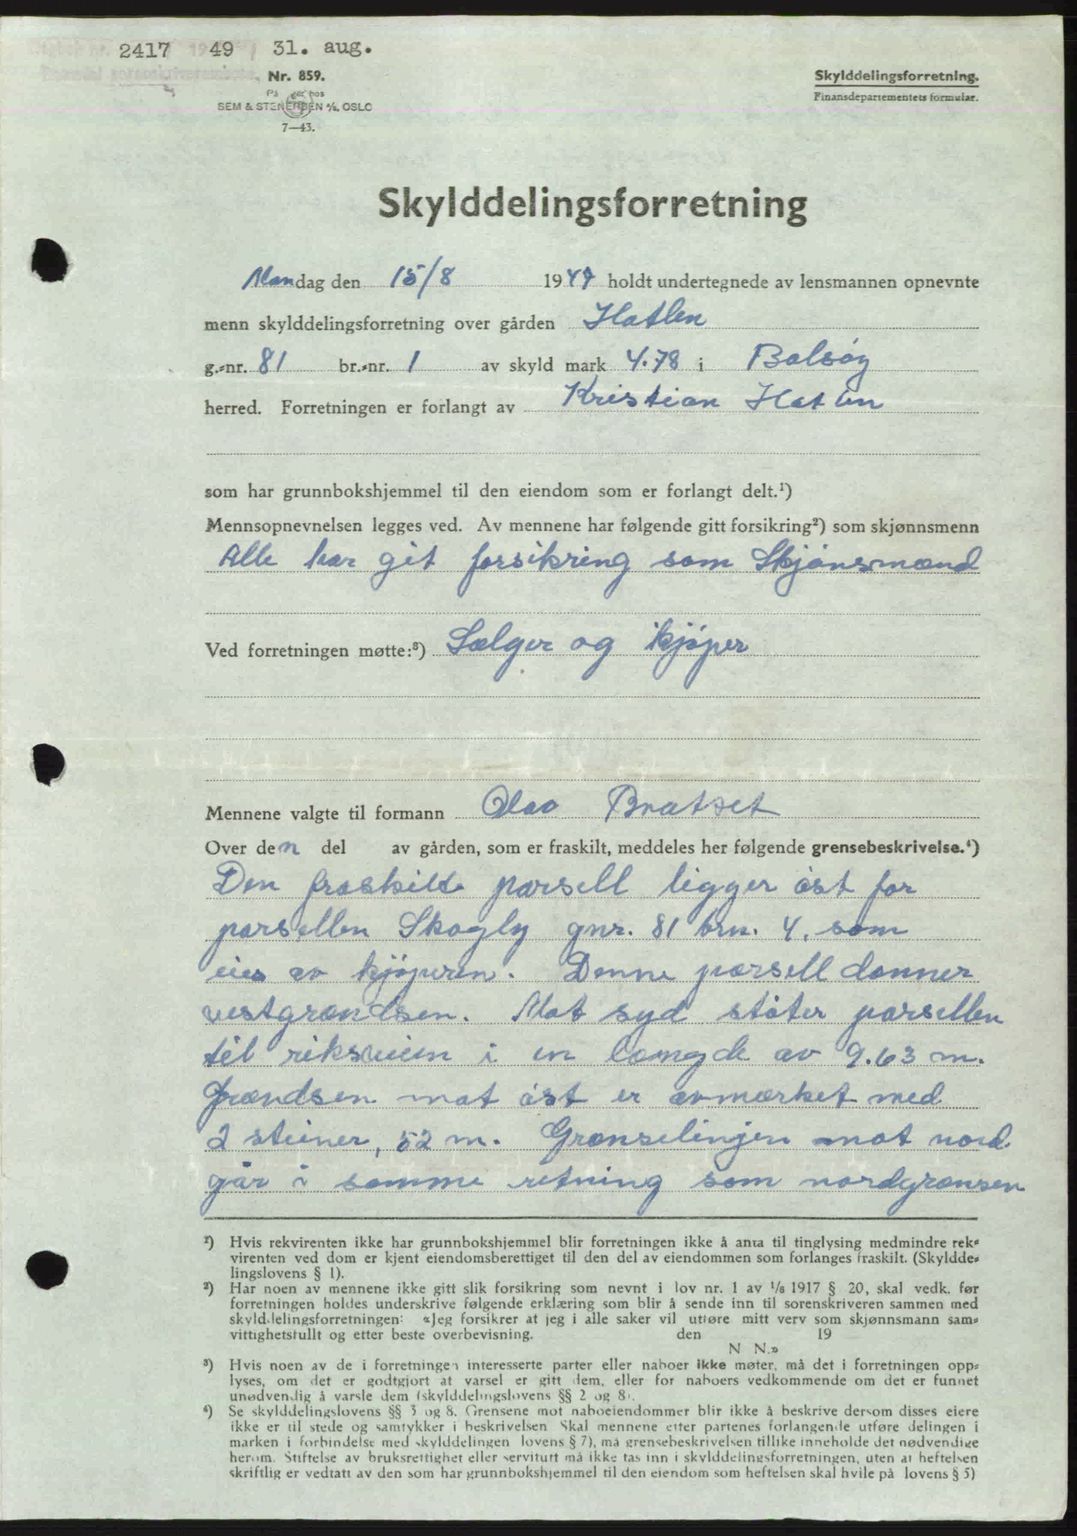 2417 1949 31. aug.
Nr. 859.
SEM & STENERSEN A/S, OSLO
7—43.
Skylddelingsforretning.
Finansdepartementets formular.
Skylddelingsforretning
Mandag den 15/8 1949 holdt undertegnede av lensmannen opnevnte
menn skylddelingsforretning over gården Hatlen
g.-nr. 81 br.-nr. 1 av skyld mark 4.78 i Bolsøy
herred. Forretningen er forlangt av Kristian Hatlen
som har grunnbokshjemmel til den eiendom som er forlangt delt.¹)
Mennsopnevnelsen legges ved. Av mennene har følgende gitt forsikring²) som skjønnsmenn
Alle har git forsikring som Skjønsmænd
Ved forretningen møtte:³) Sælger og kjøper
Mennene valgte til formann Olav Bratset
Over den del av gården, som er fraskilt, meddeles her følgende grensebeskrivelse.⁴)
Den fraskilte parsell ligger øst for
parsellen Skogly gnr. 81 brn. 4, som
eies av kjøperen. Denne parsell danner
vestgrændsen. Mot syd støter parsellen
til riksveien i en længde av 9.63 m.
Grændsen mot øst er avmærket med
2 steiner, 52 m. Grænselinjen mot nord
går i samme retning som nordgrænsen
¹) Hvis rekvirenten ikke har grunnbokshjemmel blir forretningen ikke å anta til tinglysing medmindre rek-
virenten ved dom er kjent eiendomsberettiget til den del av eiendommen som forlanges fraskilt. (Skyldde-
lingslovens § 1).
²) Har noen av mennene ikke gitt slik forsikring som nevnt i lov nr. 1 av 1/6 1917 § 20, skal vedk. før
forretningen holdes underskrive følgende erklæring som blir å sende inn til sorenskriveren sammen med
skylddelingsforretningen: «Jeg forsikrer at jeg i alle saker vil utføre mitt verv som skjønnsmann sam-
vittighetsfullt og etter beste overbevisning. den 19
N N.»
³) Hvis noen av de i forretningen interesserte parter eller naboer ikke møter, må det i forretningen opp-
lyses, om det er godtgjort at varsel er gitt dem, eller for naboers vedkommende om det er funnet
unødvendig å varsle dem (skylddelingslovens §§ 2 og 8).
⁴) Se skylddelingslovens §§ 3 og 8. Grensene mot naboeiendommer blir ikke å beskrive dersom disses eiere
ikke er til stede og samtykker i beskrivelsen Skal mennene etter partenes forlangende utføre delingen i
marken i forbindelse med skylddelingen lovens § 7), må grensebeskrivelsen tillike inneholde det nødvendige
herom. Stiftelse av bruksrettighet eller servitutt må ikke tas inn i skylddelingsforretningen, uten at heftelsen
skriftlig er vedtatt av den som har grunnbokshjemmel til den eiendom som heftelsen skal hvile på lovens § 5)